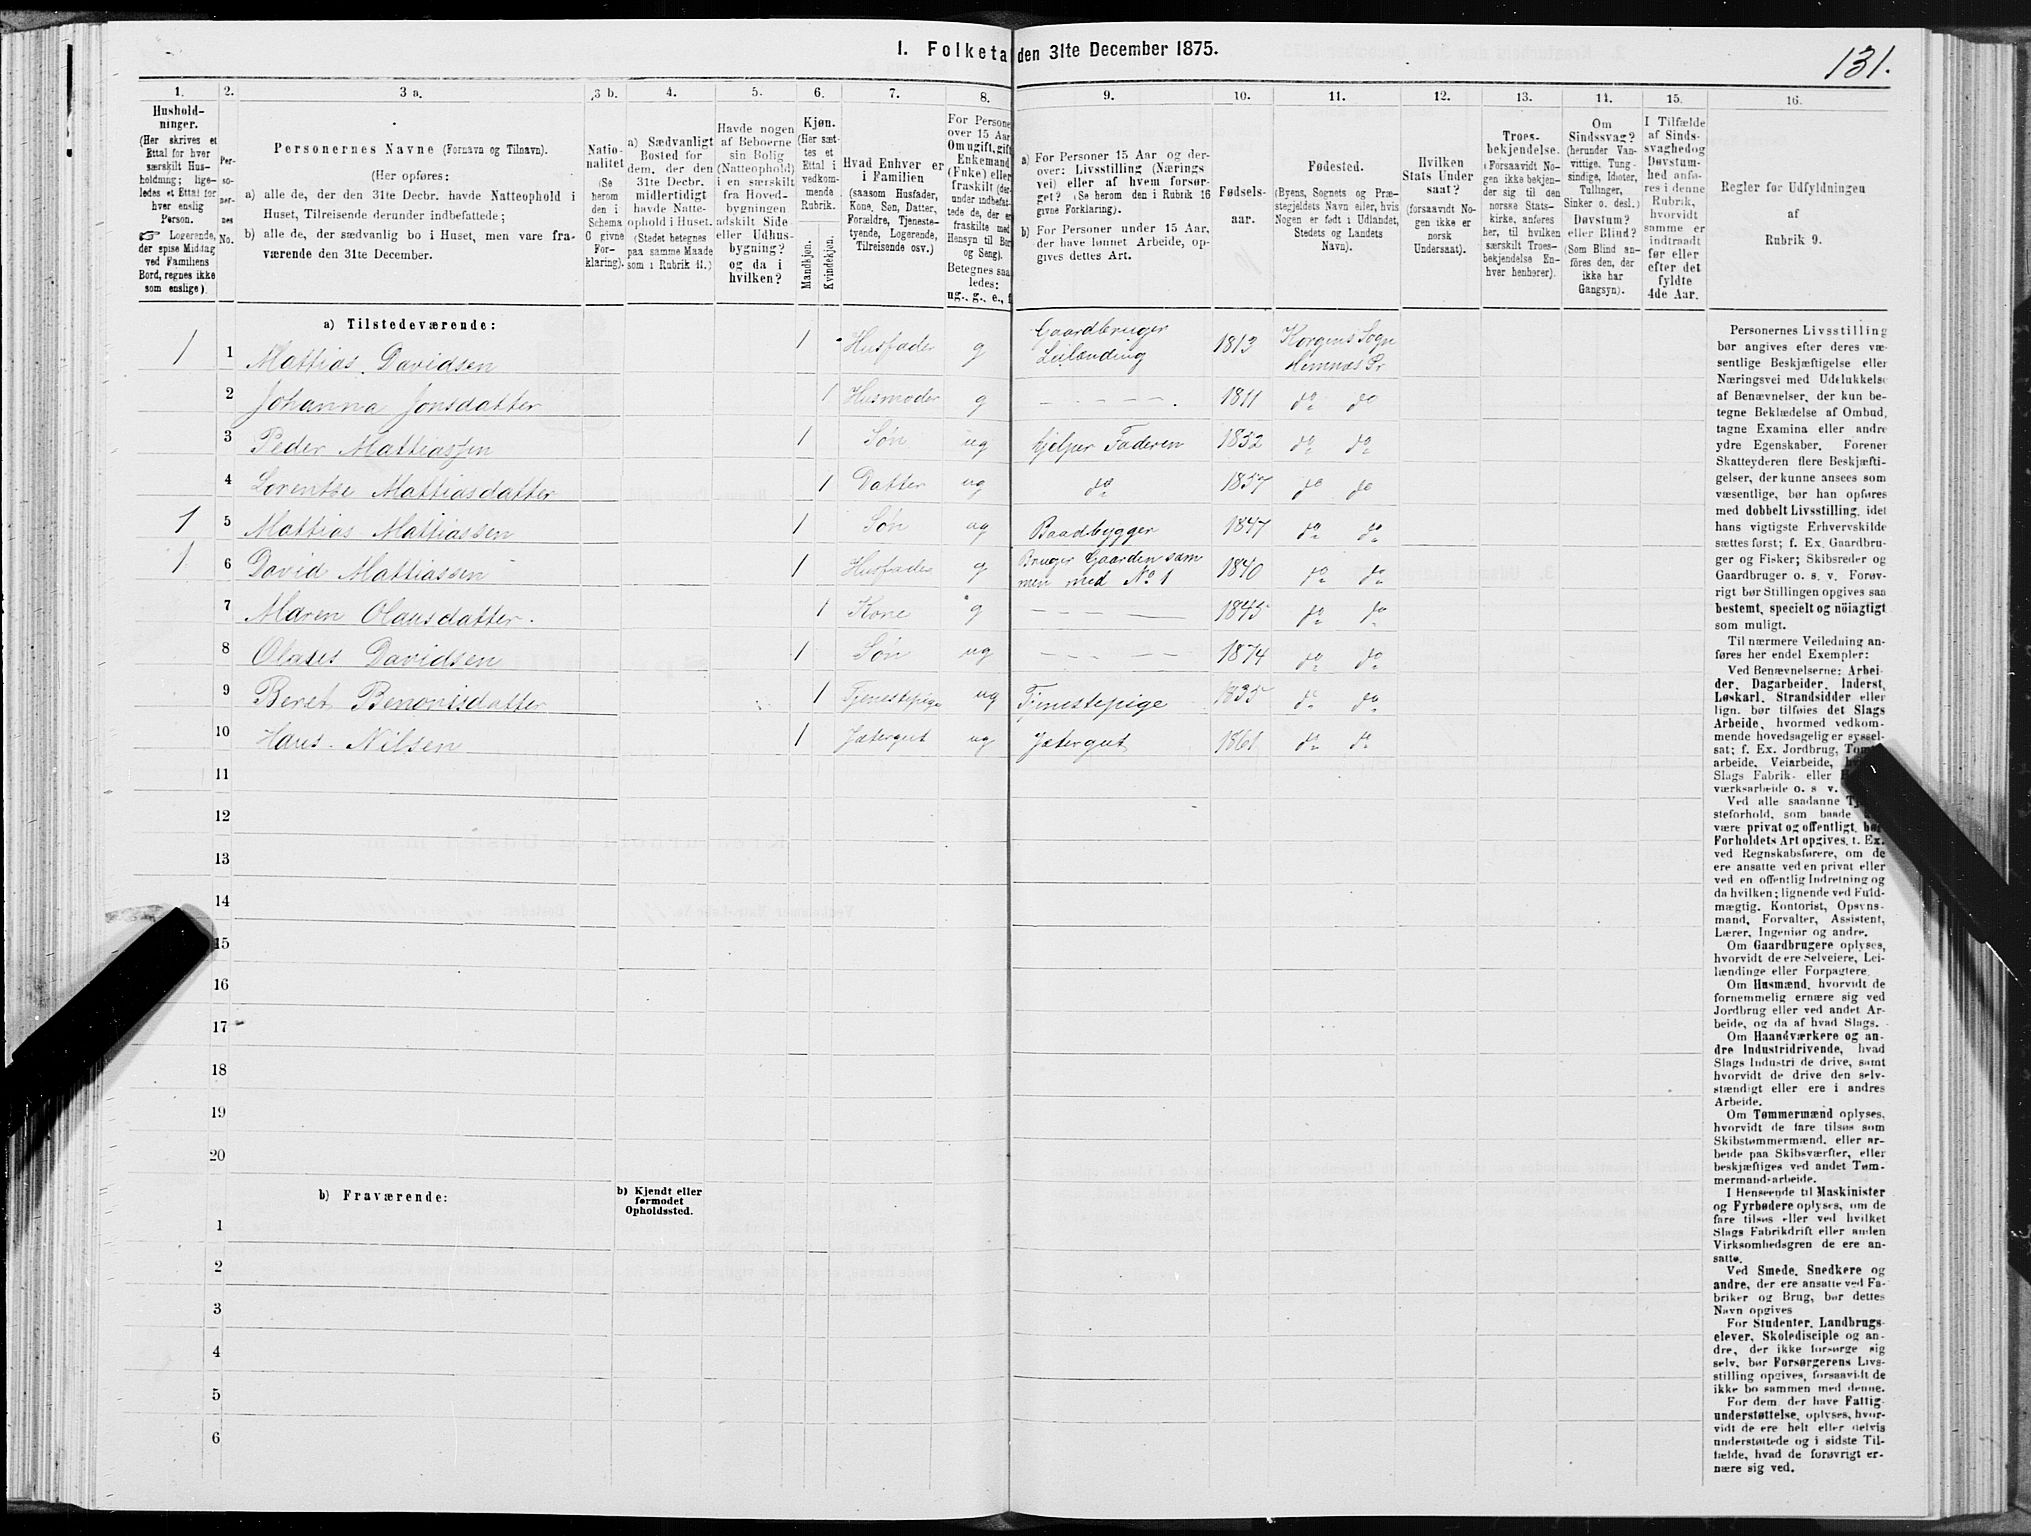 1. Folketa den 31te December 1875.
131.
1.
2.
3 a.
3 b.
4.
5.
6.
7.
8.
9.
10.
11.
12.
13.
14.
15.
16.
Hushold-
ninger.
(Her skrives et
Ettal for hver
særskilt Hus-
holdning; lige-
ledes et Ettal for
hver enslig
Person.
☞ Logerende,
der spise Middag
ved Familiens
Bord, regnes ikke
som enslige).
Per-
so-
ner-
nes
No.
Personernes Navne (Fornavn og Tilnavn).
(Her opføres:
a) alle de, der den 31te Decbr. havde Natteophold i
Huset, Tilreisende derunder indbefattede;
b) alle de, der sædvanlig bo i Huset, men vare fra-
værende den 31te December.
Natio-
nalitet
(Se
herom
den i
Schema
6 givne
For-
klaring).
a) Sædvanligt
Bosted for
dem, der den
31te Decbr.
midlertidigt
havde Natte-
ophold i Huset.
(Stedet betegnes
paa samme Maade
som i Rubrik 11.)
Havde nogen
af Beboerne
sin Bolig
(Natteophold)
i en særskilt
fra Hoved-
bygningen
adskilt Side-
eller Udhus-
bygning?
og da i
hvilken?
Kjøn.
(Her sæt-
tes et
Ettal i
vedkom-
mende
Rubrik.
Mandkjøn.
Kvindekjøn.
Hvad Enhver er
i Familien
(saasom Husfader,
Kone, Søn, Datter,
Forældre, Tjeneste-
tyende, Logerende,
Tilreisende osv.).
For Persone
over 15 Aar
Om ugift, gift
Enkemand
(Enke) eller
fraskilt (der-
under indbefat-
tede de, der er
fraskilte med
Hensyn til Bor
og Seng).
Betegnes saa
ledes:
ug., g., e., f.
a) For Personer 15 Aar og der-
over: Livsstilling (Nærings
vei) eller af hvem forsør-
get? (Se herom den i Rubrik 16
givne Forklaring).
b) For Personer under 15 Aar,
der have lønnet Arbeide, op-
gives dettes Art.
Fødsels-
aar.
Fødested.
(Byens, Sognets og Præ-
stegjeldets Navn eller, hvis
Nogen er født i Udlandet,
Stedets og Landets
Navn).
Hvilken
Stats Under
saat?
(forsaavidt No-
gen ikke er
norsk
Undersaat).
Troes-
bekjendelse.
(Forsaavidt No-
gen ikke bekjen-
der sig til den
norske Stats-
kirke, anføres
her, til hvilken
særskilt Troes-
bekjendelse En-
hver henhører).
Om
Sindssvag?
(herunder Van-
vittige, Tung-
sindige, Idioter,
Tullinger,
Sinker o. desl.)
Døvstum?
eller Blind?
(Som Blind an-
føres den, der
ikke har
Gangsyn).
I Tilfælde
af Sinds-
svaghed og
Døvstum-
hed anfø-
res i denne
Rubrik,
hvorvidt
samme er
indtraadt
før eller
efter det
fyldte
4de Aar.
Regler for Udfyldningen
af
Rubrik 9.
a) Tilstedeværende:
1 1 Mattias Davidsen 1 Husfader g Gaardbruger Leilænding 1813 Korgens Sogn Hemnæs Pr
2 Johanna Jonsdatter 1 Husmoder g - - - - - . 1811 do do
3 Peder Mattiassen 1 Søn ug hjelper Faderen 1852 do do
4 Lorentse Mattiasdatter 1 Datter ug do 1857 do do
1 5 Mattias Mattiassen 1 Søn ug Baadbygger 1847 do do
1 6 David Mattiassen 1 Husfader g Bruger Gaarden sam men med No 1 1840 do do
7 Maren Olausdatter. 1 Kone g - - - - 1845 do do
8 Olaus Davidsen 1 Søn ug - - - - 1874 do do
9 Beret Benonisdatter 1 Tjenestepige ug Tjenestepige 1835 do do
10 Hans Nilsen 1 Jætergut ug Jætergut 1861 do do
11
12
13
14
15
16
17
18
19
20
b) Fraværende:
b) Kjendt eller
formodet
Opholdssted.
1
2
3
4
5
6
Personernes Livsstilling
bør angives efter deres væ-
sentlige Beskjæftigelse eller
Næringsvei med Udelukkelse
af Benævnelser, der kun be-
tegne Beklædelse af Ombud,
tagne Examina eller andre
ydre Egenskaber. Forener
Skatteyderen flere Beskjæfti-
gelser, der kunne ansees som
væsentlige, bør han opføres
med dobbelt Livsstilling, idet
hans vigtigste Erhvervskilde
sættes først; f. Ex. Gaardbru-
ger og Fisker; Skibsreder og
Gaardbruger o. s. v. Forøv-
rigt bør Stillingen opgives saa
bestemt, specielt og nöiagtigt
som muligt.
Til nærmere Veiledning an-
føres her endel Exempler:
Ved Benævnelserne: Arbei-
der, Dagarbeider, Inderst,
Løskarl, Strandsidder eller
lign. bør tilføies det Slags
Arbeide, hvormed vedkom-
mende hovedsagelig er syssel-
sat; f. Ex. Jordbrug, Tom
arbeide, Veiarbeide,
Slags Fabrik- eller
værksarbeide o. s v.
Ved alle saadanne
steforhold, som baade
være privat og offentligt, bør
Forholdets Art opgives, t. Ex.
ved Regnskabsførere, om de
ere ansatte ved en privat eller
ved en offentlig Indretning og
da hvilken; lignende ved Fuld-
mægtig, Kontorist, Opsyns-
mand, Forvalter, Assistent,
Lærer, Ingeniør og andre.
Om Gaardbrugere oplyses,
hvorvidt de ere Selveiere, Lei-
lændinge eller Forpagtere.
Om Husmænd, hvorvidt de
fornemmelig ernære sig ved
Jordbrug eller ved andet Ar-
beide, og da af hvad Slags.
Om Haandværkere og an-
dre Industridrivende, hvad
Slags Industri de drive, samt
hvorvidt de drive den selv-
stændigt eller ere i andres
Arbeide.
Om Tømmermænd oplyses,
hvorvidt de fare tilsøs som
Skibstømmermænd, eller ar-
beide paa Skibsværfter, eller
beskjæftiges ved andet Tøm-
mermand-arbeide.
I Henseende til Maskinister
og Fyrbødere oplyses, om de
fare tilsøs eller ved hvilket
Slags Fabrikdrift eller anden
Virksomhedsgren de ere an-
satte.
Ved Smede, Snedkere og
andre, der ere ansatte ved Fa-
briker og Brug, bør dettes
Navn opgives
For Studenter, Landbrugs-
elever, Skoledisciple og an-
dre, der ikke forsørge sig
selv, bør Forsørgerens Livs-
stilling opgives, forsaavidt de
ikke bo sammen med denne.
For dem, der have Fattig-
understøttelse, oplyses, hvor-
vidt de ere helt eller delvis
understøttede og i sidste Til-
fælde, hvad de forøvrigt er-
nære sig ved.